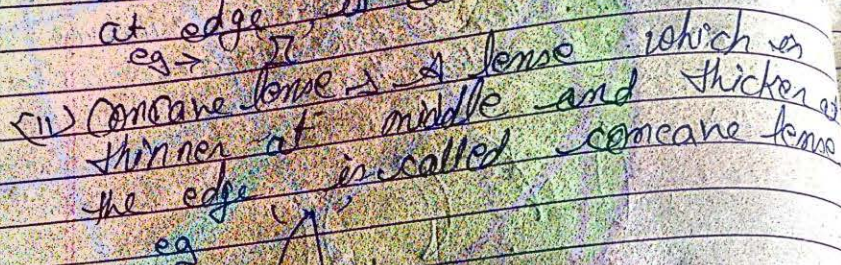 at edge, is ca
eg →
<11> Concave lense → A lense which is
thinner at middle and thicker at
the edge is called concave lense
eg